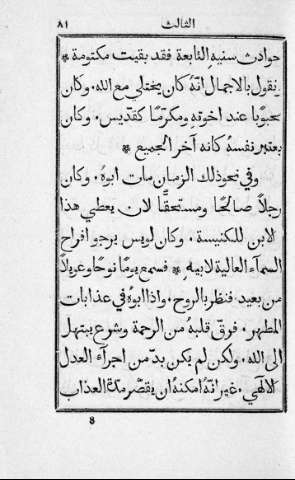 الثالث ٨١
حوادث سنيه التابعة فقد بقيت مكتومة *
نقول بالاجمال انهُ كان يختلي مع الله. وكان
محبوبًا عند اخوتهِ ومكرّمًا كقديس. وكان
يعتبر نفسهُ كانه آخر الجميع *
وفي نحو ذلك الزمان مات ابوهُ. وكان
رجلاً صالحًا ومستحقًّا لان يعطي هذا
الابن للكنيسة. وكان لويس يرجو افراح
السمآء العالية لابيهِ * فسمع يومًا نوحًا وعويلاً
من بعيد. فنظر بالروح. واذا ابوهُ في عذابات
المطهر. فرقّ قلبهُ من الرحمة وشرع يبتهل
الى الله. ولكن لم يكن بدّ من اجرآء العدل
الالهي. غير انهُ امكنهُ ان يقصّر مدة العذاب
8